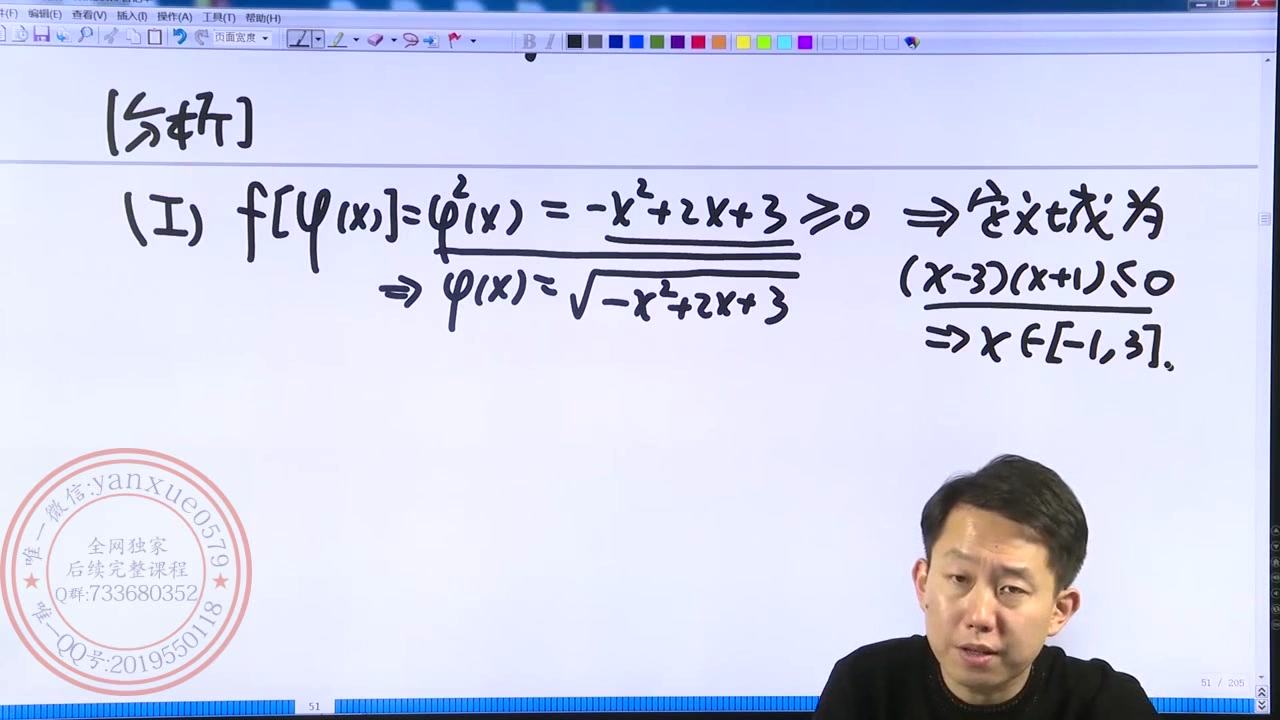 件(F) 编辑(E) 查看(V) 插入(I) 操作(A) 工具(T) 帮助(H)
页面宽度
B I
[分析]
(I) f[φ(x)]=φ²(x) = -x²+2x+3 ≥0 ⇒ 定义域为
(x-3)(x+1)≤0
⇒ φ(x)=√(-x²+2x+3)
⇒ x∈[-1,3].
唯一微信:yanxue0579
全网独家
后续完整课程
Q群:733680352
唯一QQ号:2019550118
51 / 205
51